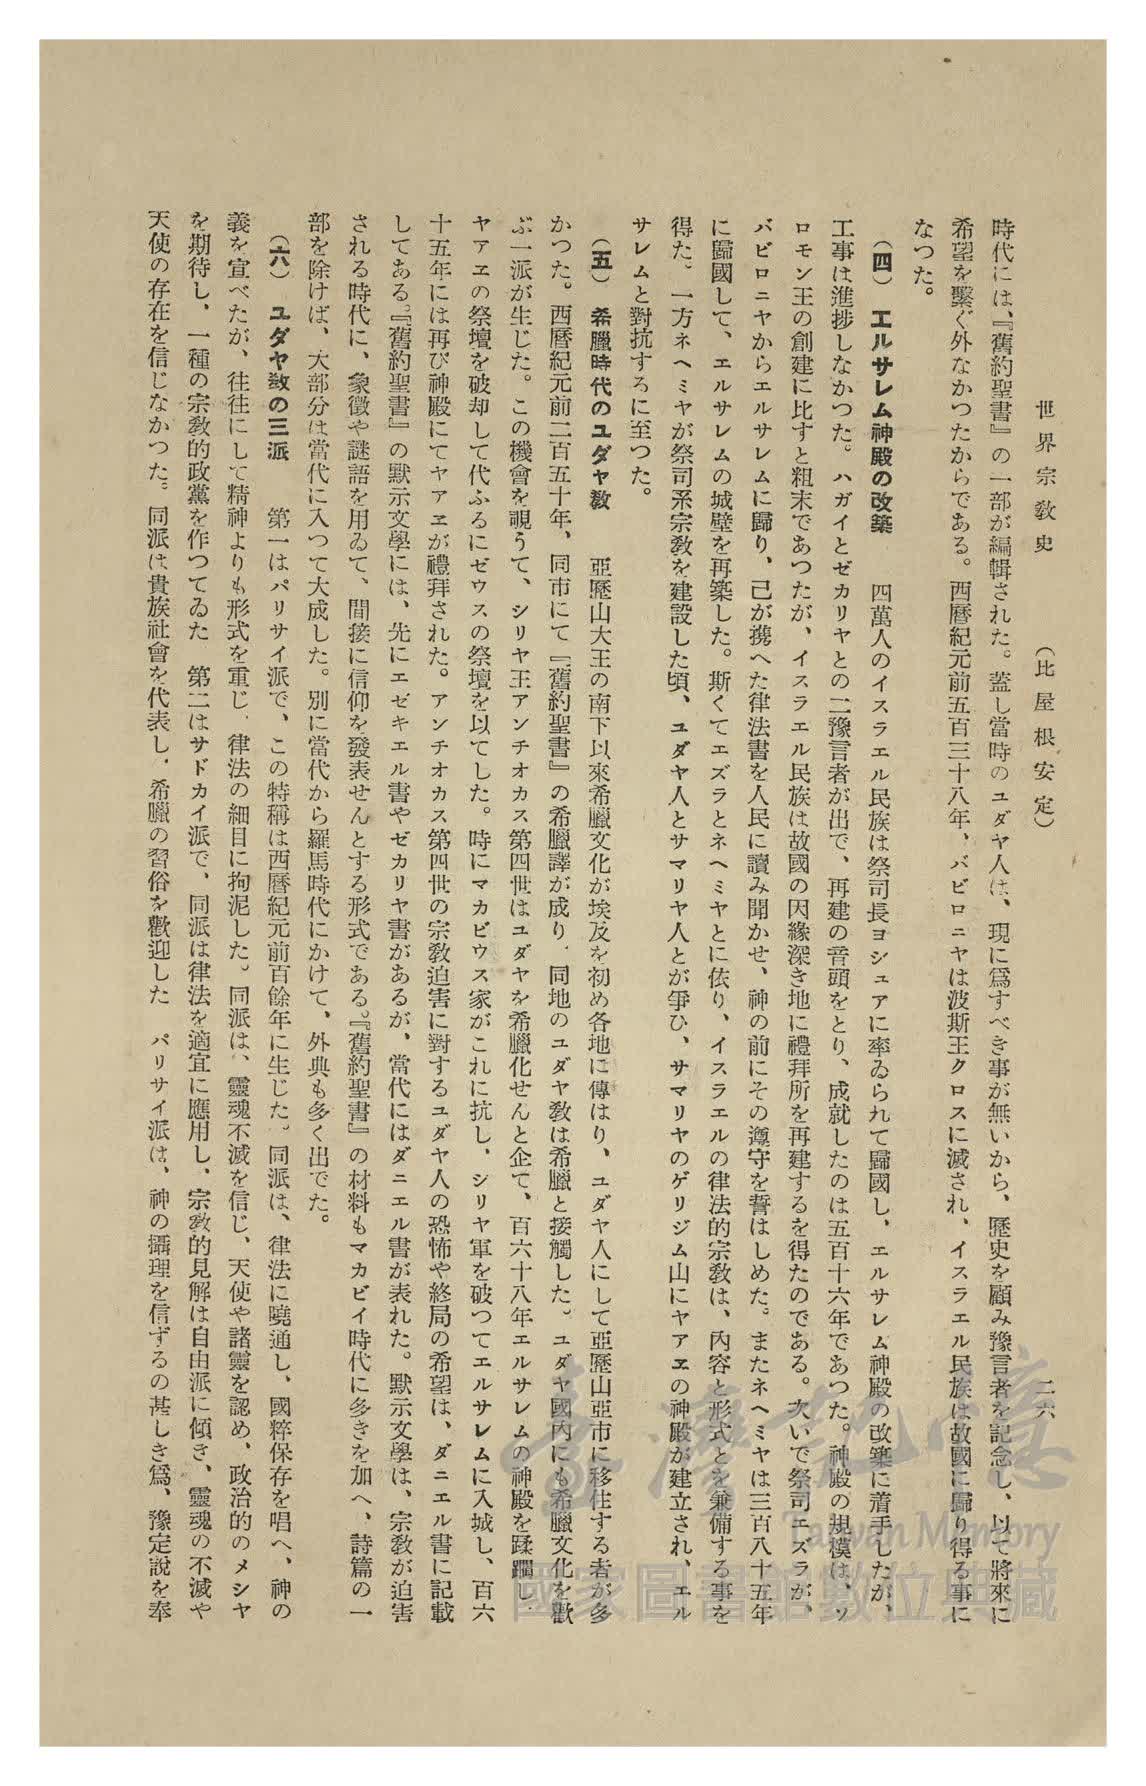 世界宗教史　（比屋根安定）　二六
時代には、『舊約聖書』の一部が編輯された。蓋し當時のユダヤ人は、現に爲すべき事が無いから、歷史を顧み豫言者を記念し、以て將來に
希望を繫ぐ外なかつたからである。西曆紀元前五百三十八年、バビロニヤは波斯王クロスに滅され、イスラエル民族は故國に歸り得る事に
なつた。
（四）　エルサレム神殿の改築　四萬人のイスラエル民族は祭司長ヨシュアに率ゐられて歸國し、エルサレム神殿の改築に着手したが、
工事は進捗しなかつた。ハガイとゼカリヤとの二豫言者が出で、再建の音頭をとり、成就したのは五百十六年であつた。神殿の規模は、ソ
ロモン王の創建に比すと粗末であつたが、イスラエル民族は故國の因緣深き地に禮拜所を再建するを得たのである。次いで祭司エズラが、
バビロニヤからエルサレムに歸り、己が携へた律法書を人民に讀み聞かせ、神の前にその遵守を誓はしめた。またネヘミヤは三百八十五年
に歸國して、エルサレムの城壁を再築した。斯くてエズラとネヘミヤとに依り、イスラエルの律法的宗教は、內容と形式とを兼備する事を
得た。一方ネヘミヤが祭司系宗教を建設した頃、ユダヤ人とサマリヤ人とが爭ひ、サマリヤのゲリジム山にヤアヱの神殿が建立され、エル
サレムと對抗するに至つた。
（五）　希臘時代のユダヤ教　亞歷山大王の南下以來希臘文化が埃及を初め各地に傳はり、ユダヤ人にして亞歷山亞市に移住する者が多
かつた。西曆紀元前二百五十年、同市にて『舊約聖書』の希臘譯が成り、同地のユダヤ教は希臘と接觸した。ユダヤ國內にも希臘文化を歡
ぶ一派が生じた。この機會を覗うて、シリヤ王アンチオカス第四世はユダヤを希臘化せんと企て、百六十八年エルサレムの神殿を蹂躙し、
ヤアヱの祭壇を破却して代ふるにゼウスの祭壇を以てした。時にマカビウス家がこれに抗し、シリヤ軍を破つてエルサレムに入城し、百六
十五年には再び神殿にてヤアヱが禮拜された。アンチオカス第四世の宗教迫害に對するユダヤ人の恐怖や終局の希望は、ダニエル書に記載
してある。『舊約聖書』の默示文學には、先にエゼキエル書やゼカリヤ書があるが、當代にはダニエル書が表れた。默示文學は、宗教が迫害
される時代に、象徵や謎語を用ゐて、間接に信仰を發表せんとする形式である。『舊約聖書』の材料もマカビイ時代に多きを加へ、詩篇の一
部を除けば、大部分は當代に入つて大成した。別に當代から羅馬時代にかけて、外典も多く出でた。
（六）　ユダヤ教の三派　第一はパリサイ派で、この特稱は西曆紀元前百餘年に生じた。同派は、律法に曉通し、國粹保存を唱へ、神の
義を宣べたが、往往にして精神よりも形式を重じ、律法の細目に拘泥した。同派は、靈魂不滅を信じ、天使や諸靈を認め、政治的のメシヤ
を期待し、一種の宗教的政黨を作つてゐた　第二はサドカイ派で、同派は律法を適宜に應用し、宗教的見解は自由派に傾き、靈魂の不滅や
天使の存在を信じなかつた。同派は貴族社會を代表し、希臘の習俗を歡迎した　パリサイ派は、神の攝理を信ずるの甚しき爲、豫定說を奉
臺灣記憶
Taiwan Memory
國家圖書館數位典藏